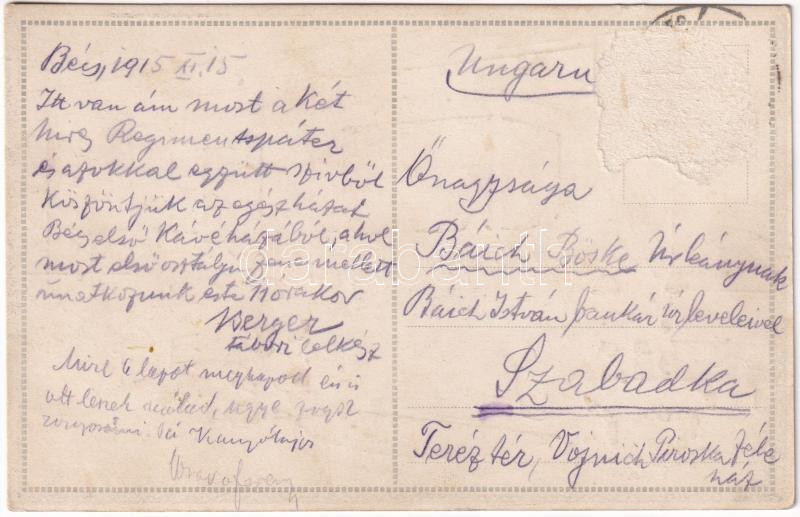 Bécs, 1915 XI. 15.
Itt van ám most a két
hires Regimentspáter
és azokkal együtt szivből
köszöntjük az egész házat
Bécs első Kávéházából, ahol
most első osztályú zene mellett
unatkozunk este órakor
Berger
tábori lelkész
Mire a lapot megkapod én is
ott leszek nálad, ugye fogsz
Ungarn
Őnagysága
Báich Böske Úrleánynak
Báich István bankár úr leveleivel
Szabadka
Teréz tér, Vojnich Piroska féle
ház
darabanth